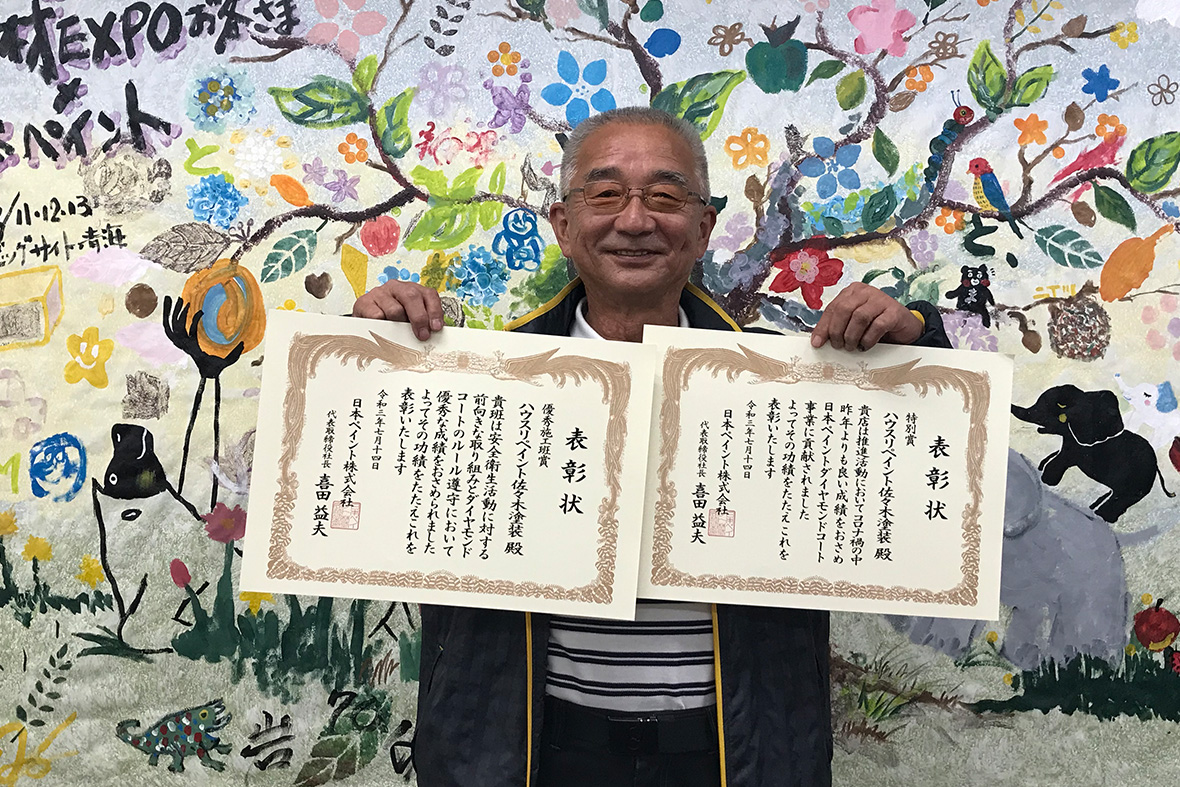 材EXPOお客さま
と
ペイント
11.12.13
ビッグサイト青海
と
と、
表彰状
優秀施工班賞
ハウスリペイント佐々木塗装 殿
貴班は安全衛生活動に対する
前向きな取り組みとダイヤモンド
コートのルール遵守において
優秀な成績をおさめられました
よってその功績をたたえこれを
表彰いたします
令和三年七月十四日
日本ペイント株式会社
代表取締役社長 喜田益夫
表彰状
特別賞
ハウスリペイント佐々木塗装 殿
貴店は推進活動においてコロナ禍の中
昨年よりも良い成績をおさめ
日本ペイントダイヤモンドコート
事業に貢献されました
よってその功績をたたえこれを
表彰いたします
令和三年七月十四日
日本ペイント株式会社
代表取締役社長 喜田益夫